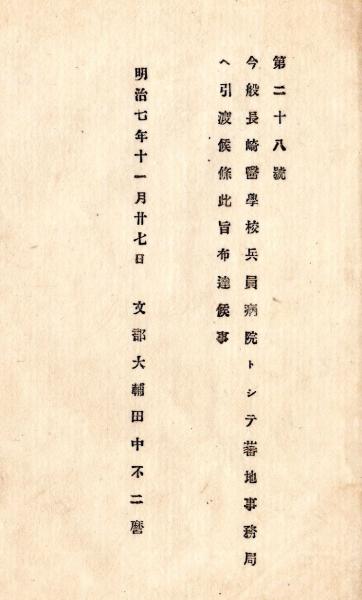 第二十八號
今般長崎醫學校兵員病院トシテ蕃地事務局
ヘ引渡候條此旨布達候事
明治七年十一月廿七日 文部大輔田中不二麿